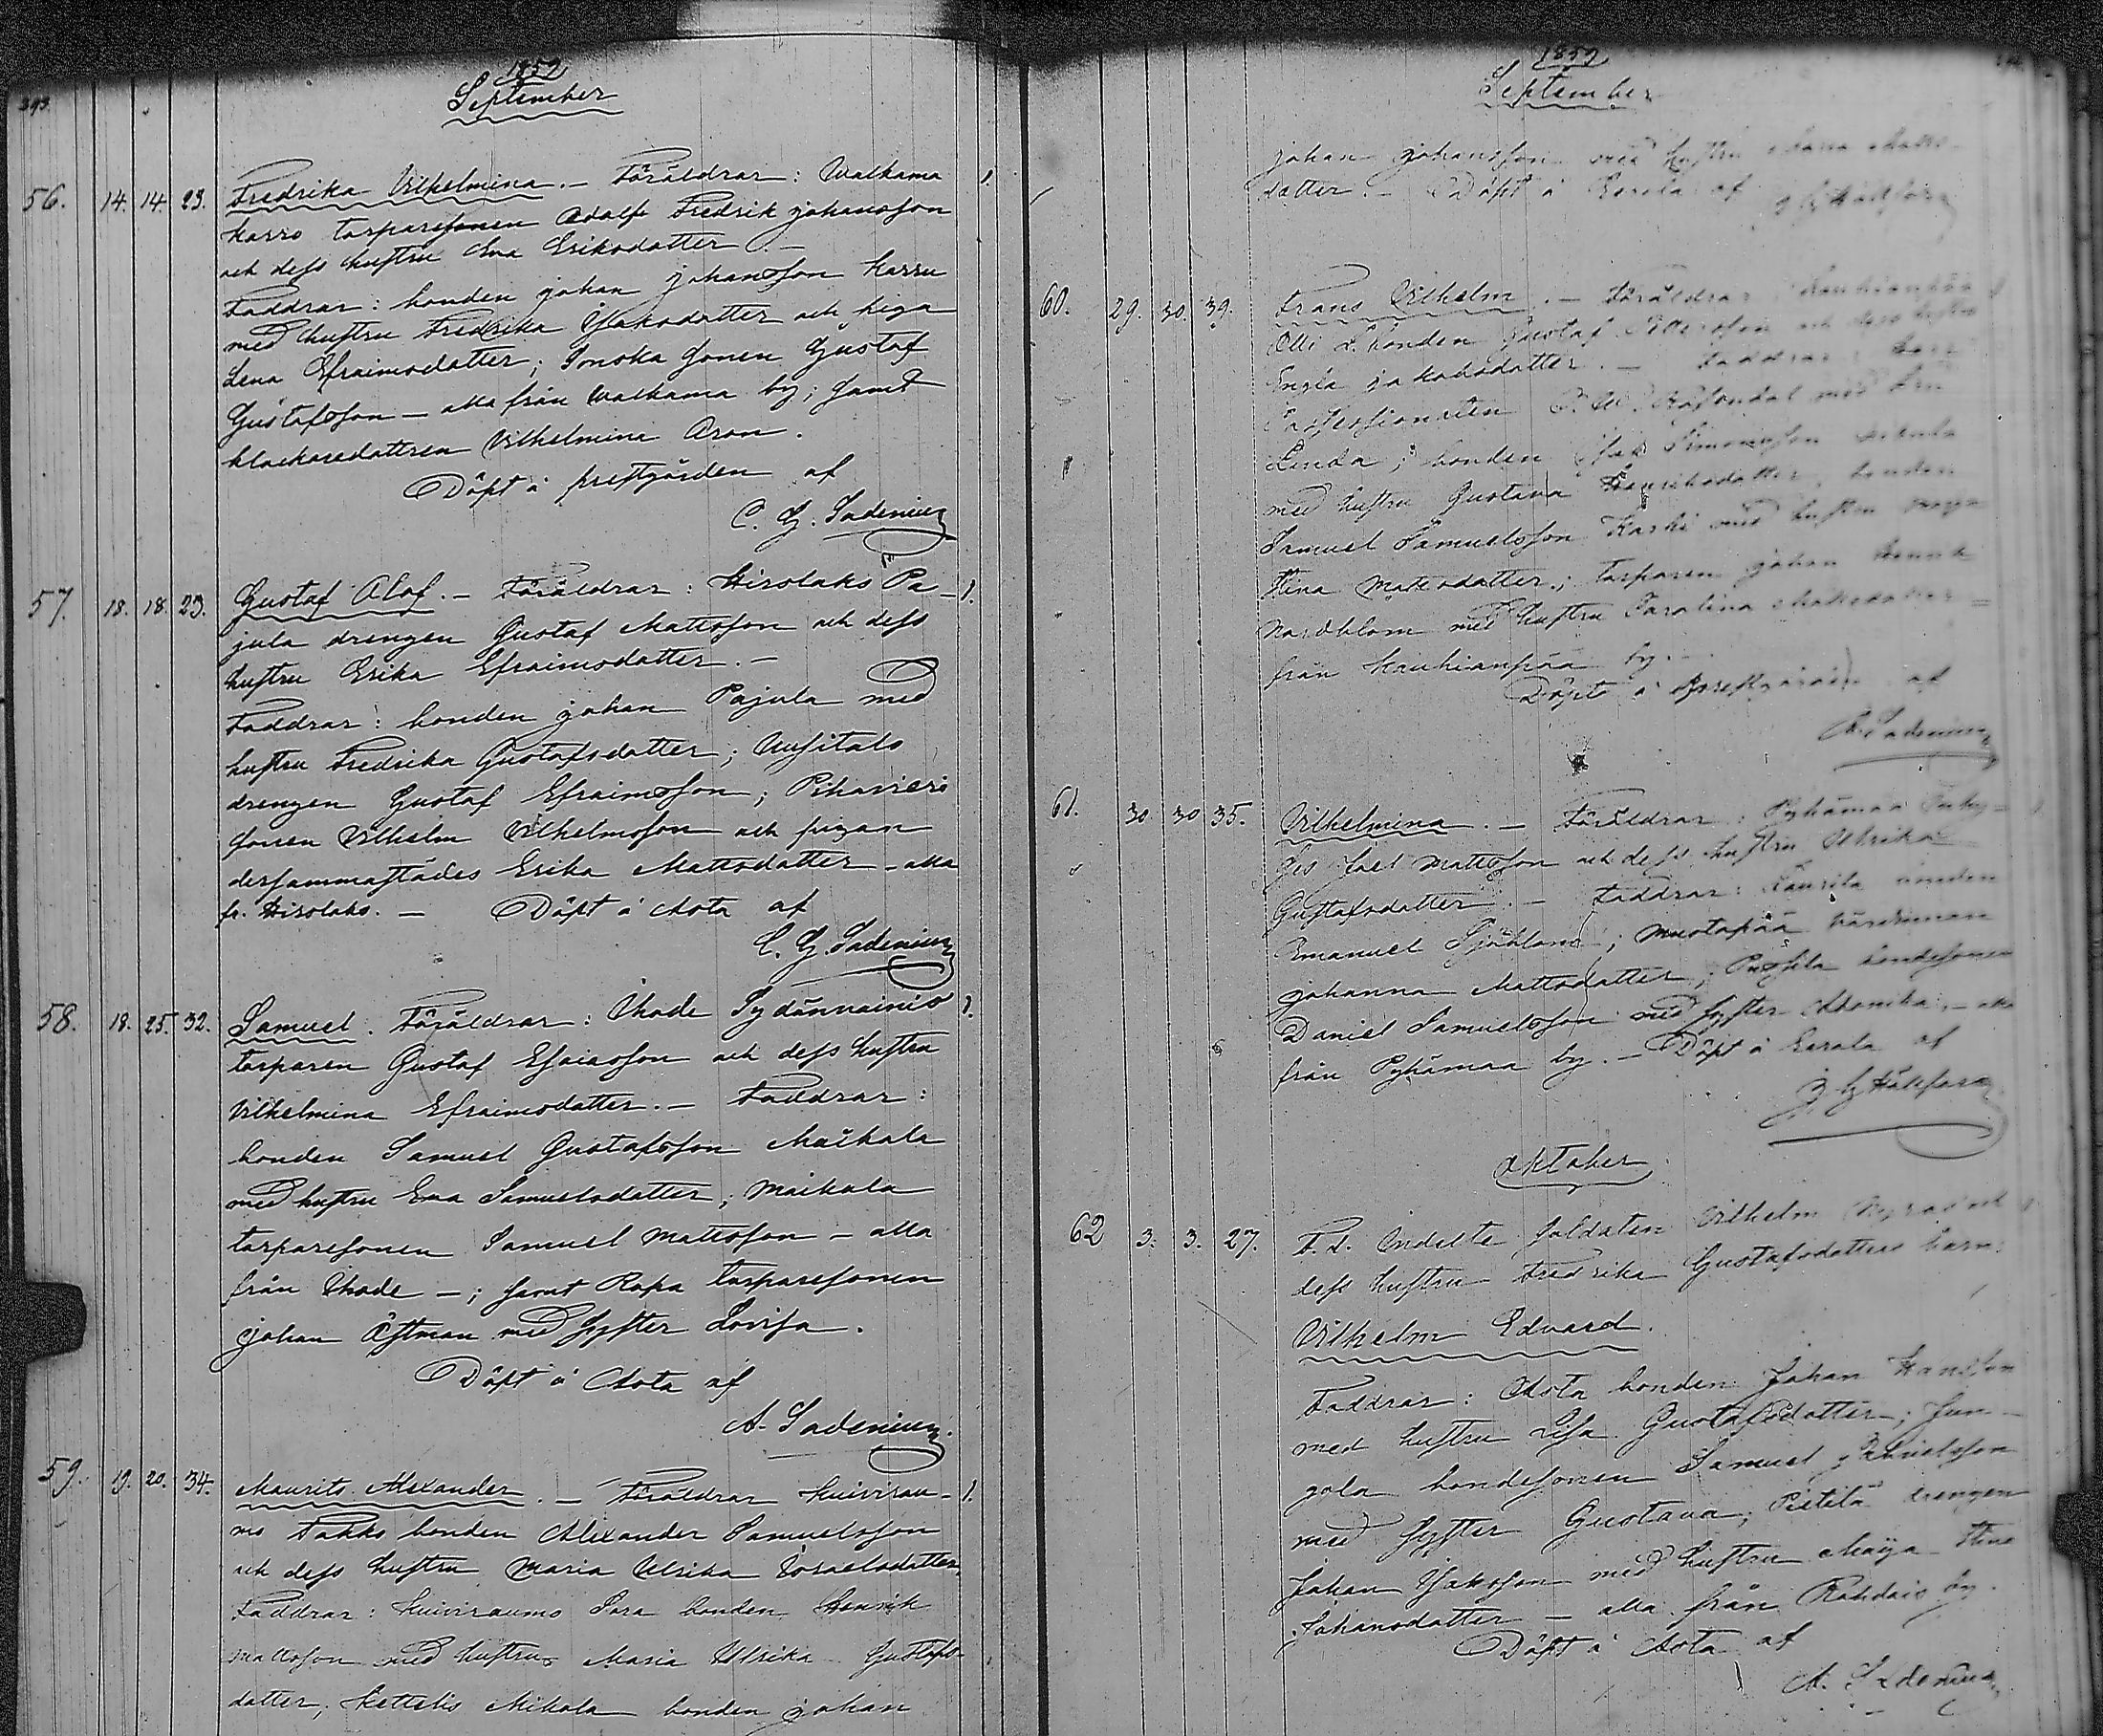 293.
1859
September
56. 14. 14. 23. Fredrika Vilhelmina. — Föräldrar: Walkama
Karro torparesonen Adolf Fredrik Johansson
och dess hustru Eva Eriksdotter. —
Faddrar: bonden Johan Johansson Karru
med hustru Fredrika Isaksdotter och piga
Lena Efraimsdotter; Sonska sonen Gustaf
Gustafsson — alla från Walkama by; samt
klockaredottren Vilhelmina Aron.
Döpt å prestgården af
C. G. Sadenius
57. 18. 18. 23. Gustaf Olof. — Föräldrar: Hirslaks Pa- 1.
jula drengen Gustaf Mattsson och dess
hustru Erika Efraimsdotter. —
Faddrar: bonden Johan Pajula med
hustru Fredrika Gustafsdotter; Uusitalo
drengen Gustaf Efraimsson; Pihavieri
sonen Vilhelm Vilhelmsson och pigan
dersammastädes Erika Mattsdotter — alla
fr. Hirslaks. — Döpt å Aota af
C. G. Sadenius
58. 18. 25. 32. Samuel. Föräldrar: Ihode Sydänmainio 1.
torparen Gustaf Esaiasson och dess hustru
Vilhelmina Efraimsdotter. — Faddrar:
bonden Samuel Gustafsson Maikala
med hustru Eva Samuelsdotter; Maikala
torparesonen Samuel Mattsson — alla
från Ihode —; samt Ropa torparesonen
Johan Östman med syster Lovisa.
Döpt å Aota af
A. Sadenius.
59. 19. 20. 34. Maurits Alexander. — Föräldrar Kuivirau- 1.
mo Pakko bonden Alexander Samuelsson
och dess hustru Maria Ulrika Israelsdotter.
Faddrar: Kuiviraumo Sora bonden Henrik
Mattsson med hustru Maria Ulrika Gustafs-
dotter, Kettelis Mikola bonden Johan
1859
September
Johan Johansson med hustru Maria Matts-
dotter. — Döpt å Eerola af
60. 29. 30. 39. Frans Vilhelm. — Föräldrar: Kauhianpää
Olli L. bonden Gustaf Pettersson och dess hustru
Engla Jakobsdotter. — Faddrar:
Professionisten med
Linda; bonden Isak Simonsson
med hustru Gustava Henriksdotter, bonden
Samuel Samuelsson Karhi med hustru Maja
Stina Mattsdotter; torparen Johan Henrik
Nordblom med hustru Carolina Mattsdotter =
från Kauhianpää by. —
Döpt å Prestgården af
A. Sadenius
61. 30. 30 35. Vilhelmina. — Föräldrar: Pyhämaa Inhy-
ses Joel Mattsson och dess hustru Ulrika
Gustafsdotter. — Faddrar: Laurila
Emanuel Sjöblom; Mustapää värdinnan
Johanna Mattsdotter; Puosila bondesonen
Daniel Samuelsson med syster Adamika, — alla
från Pyhämaa by. — Döpt å Eerola af
J. G. Hällfors
Oktober
62 3. 3. 27. F. d. Indelte soldaten Vilhelm Nyrod och
dess hustru Fredrika Gustafsdotters barn:
Vilhelm Edvard.
Faddrar: Aota bonden Johan Hansson
med hustru Lisa Gustafsdotter; Jun-
gola bondesonen Samuel Samuelsson
med syster Gustava; Pietilä drengen
Johan Isaksson med hustru Maija Stina
Johansdotter — alla från Rohdais by.
Döpt å Aota af
A. Sadenius